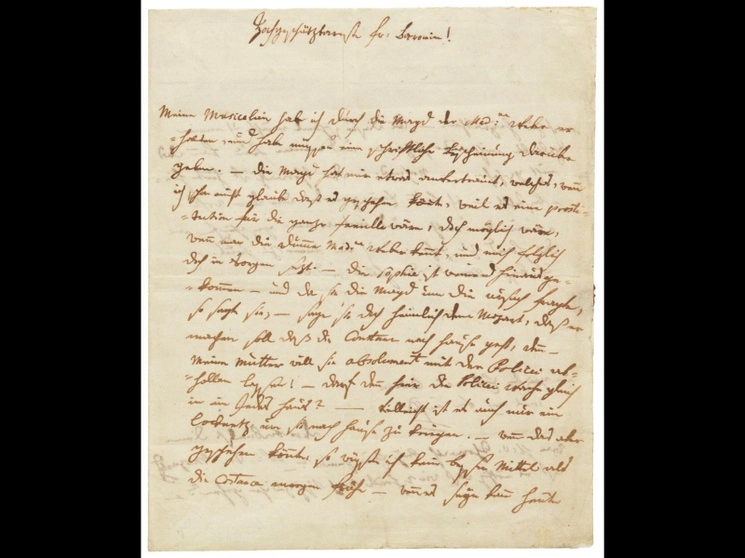 Hochgeschätzteste fr: Baronin!
Meine Musicalien hab ich durch die Magd der Mad:me Weber er-
=halten, und habe müssen eine schriftliche bescheinung darüber
geben. — die Magd hat mir etwas anvertrauet, welches, wenn
ich schon nicht glaube daß es geschehen könnte, weil es eine prosti-
=tution für die ganze familie wäre, doch möglich wäre,
wenn man die dumme Mad:me Weber kennt, und mich folglich
doch in Sorgen sezt. — die sophie ist weinend hinausge-
=kommen — und da sie die Magd um die ursach fragte,
so sagte sie, — sage sie doch heimlich dem Mozart, daß er
machen soll daß die Constanz nach hause geht, denn —
Meine Mutter will sie absolument mit der Policei ab-
=hollen lassen! — darf denn hier die Policei wache gleich
in ein Jedes haus? — Vielleicht ist es auch nur ein
locknetz um sie nach hause zu kriegen. — wenn das aber
geschehen könnte, so wüsste ich kein besser Mittel als
die Costanza morgen frühe — wenn es seyn kann heute